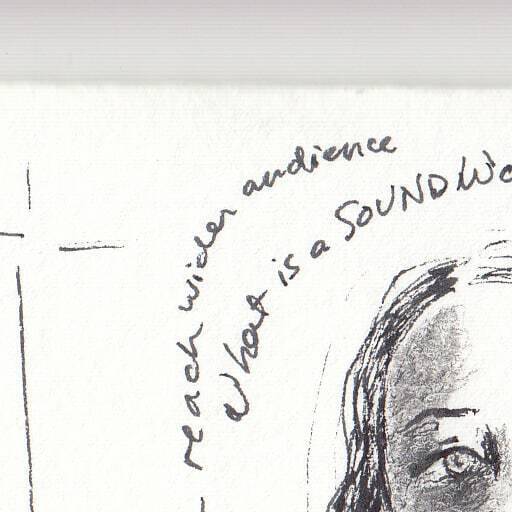 reach wider audience
What is a SOUNDWO